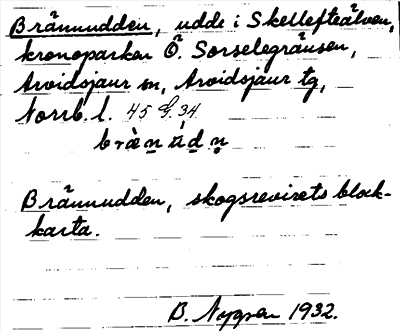 Brännudden, udde i Skellefteälven,
kronoparken Ö. Sorselegränsen,
Arvidsjaur sn, Arvidsjaur tg,
Norrb. l. 45 34
Brännudden, skogsrevirets block-
karta.
B. Nygren 1932.